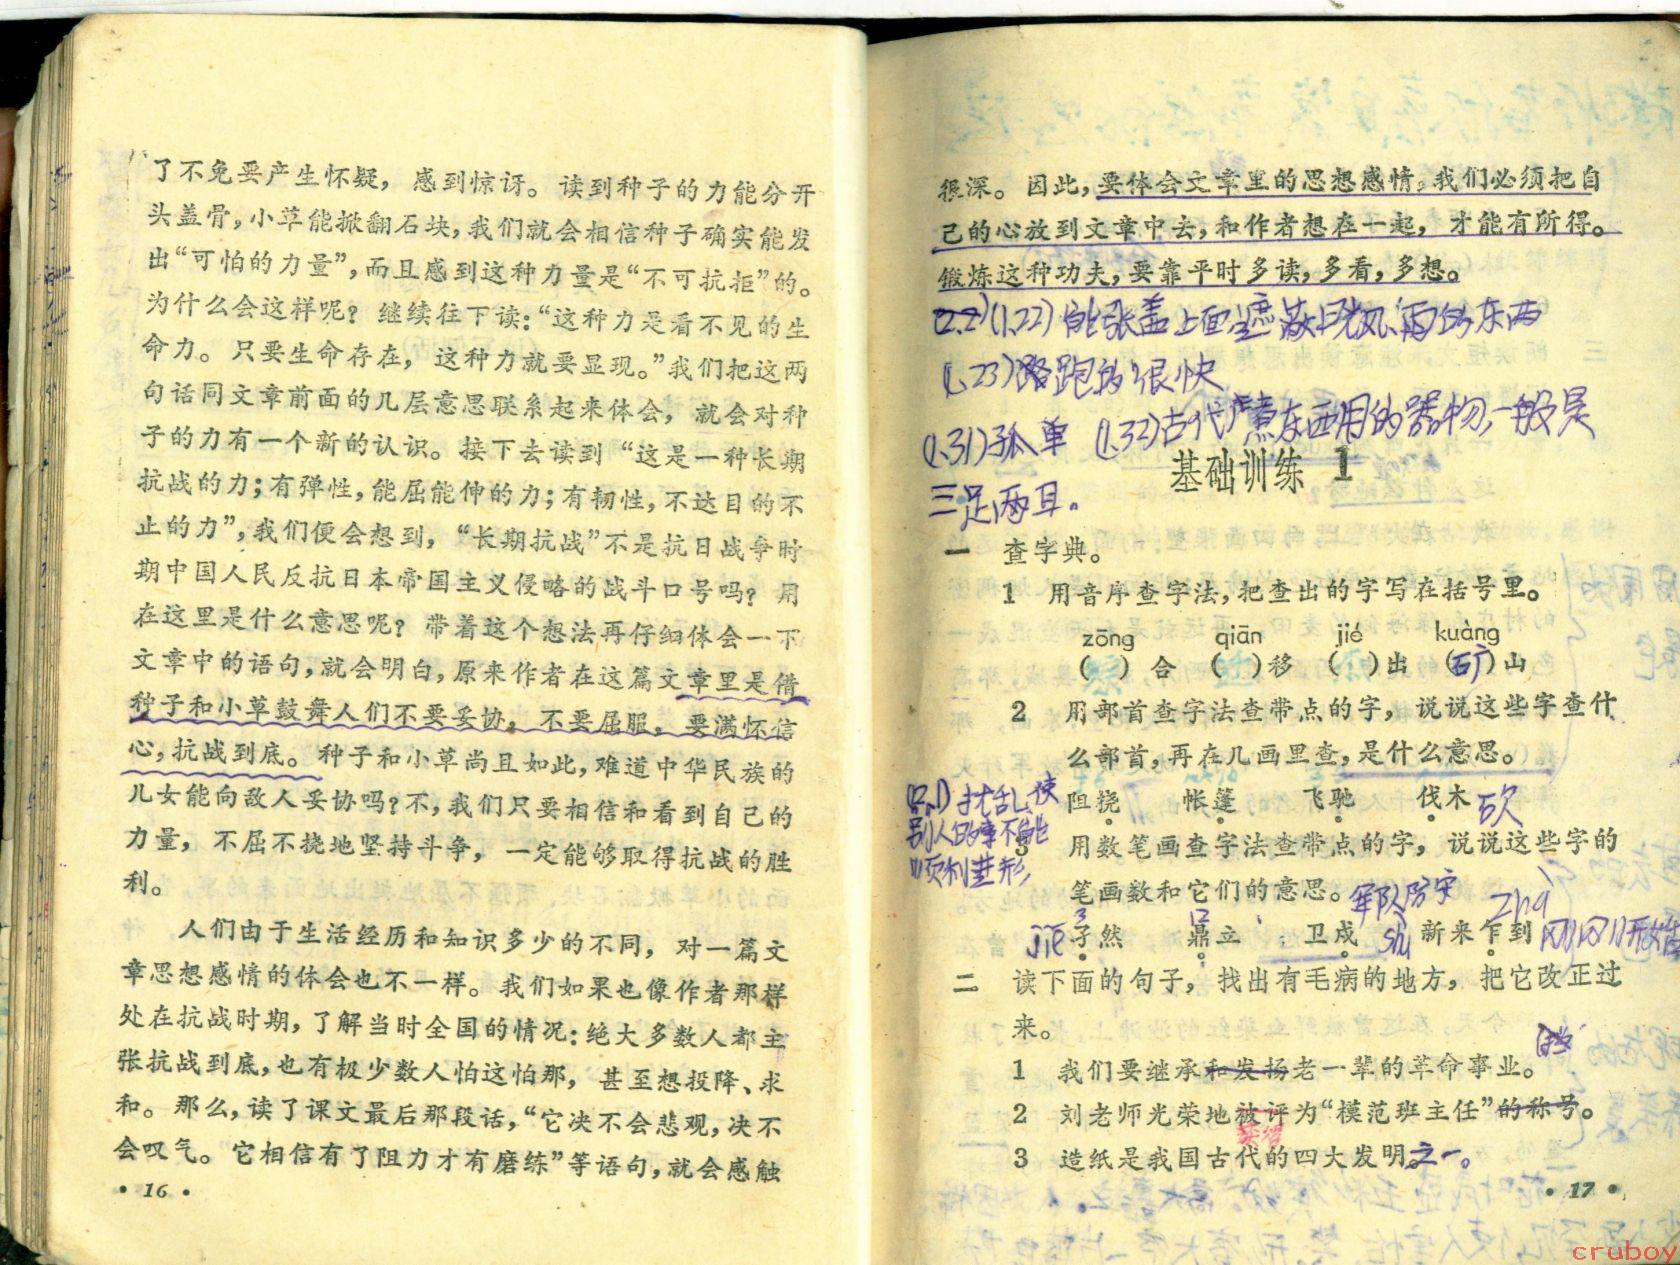 了不免要产生怀疑，感到惊讶。读到种子的力能分开
头盖骨，小草能掀翻石块，我们就会相信种子确实能发
出“可怕的力量”，而且感到这种力量是“不可抗拒”的。
为什么会这样呢？继续往下读：“这种力是看不见的生
命力。只要生命存在，这种力就要显现。”我们把这两
句话同文章前面的几层意思联系起来体会，就会对种
子的力有一个新的认识。接下去读到“这是一种长期
抗战的力；有弹性，能屈能伸的力；有韧性，不达目的不
止的力”，我们便会想到，“长期抗战”不是抗日战争时
期中国人民反抗日本帝国主义侵略的战斗口号吗？用
在这里是什么意思呢？带着这个想法再仔细体会一下
文章中的语句，就会明白，原来作者在这篇文章里是借
种子和小草鼓舞人们不要妥协，不要屈服，要满怀信
心，抗战到底。种子和小草尚且如此，难道中华民族的
儿女能向敌人妥协吗？不，我们只要相信和看到自己的
力量，不屈不挠地坚持斗争，一定能够取得抗战的胜
利。
人们由于生活经历和知识多少的不同，对一篇文
章思想感情的体会也不一样。我们如果也像作者那样
处在抗战时期，了解当时全国的情况：绝大多数人都主
张抗战到底，也有极少数人怕这怕那，甚至想投降、求
和。那么，读了课文最后那段话，“它决不会悲观，决不
会叹气。它相信有了阻力才有磨练”等语句，就会感触
·16·
很深。因此，要体会文章里的思想感情，我们必须把自
己的心放到文章中去，和作者想在一起，才能有所得。
锻炼这种功夫，要靠平时多读，多看，多想。
(1.22)能张盖上面遮蔽日光风、雨的东西
(1.23)跑的很快
(1.31)孤单 (1.32)古代煮东西用的器物，一般是
三足两耳。
基础训练 1
一 查字典。
1 用音序查字法，把查出的字写在括号里。
zōng qiān jié kuàng
( )合 ( )移 ( )出 (矿)山
2 用部首查字法查带点的字，说说这些字查什
么部首，再在几画里查，是什么意思。
阻挠 帐篷 飞驰 伐木 砍
扰乱，使
别人的事不能
顺利进行
3 用数笔画查字法查带点的字，说说这些字的
笔画数和它们的意思。军队防守
3 12 zhà
jié 孑然 鼎立 卫戍 shù 新来乍到 刚刚开始
二 读下面的句子，找出有毛病的地方，把它改正过
来。
1 我们要继承和发扬老一辈的革命事业。
2 刘老师光荣地被评为“模范班主任”的称号。
3 造纸是我国古代的四大发明之一。
·17·
cruboy